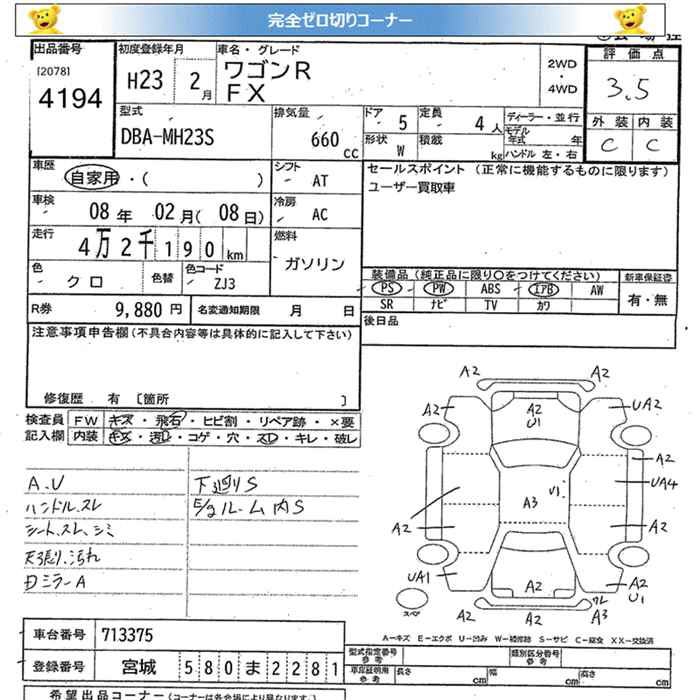 完全ゼロ切りコーナー
出品番号
[2078]
4194
初度登録年月
H23 2月
車名・グレード
ワゴンR
FX
2WD
・
4WD
評価点
3.5
外装 内装
C C
型式
DBA-MH23S
排気量
660 cc
ドア 5
定員 4人
形状 W
積載 kg
ディーラー・並行
モデル年式 年
ハンドル 左・右
車歴
自家用・( )
シフト
AT
セールスポイント (正常に機能するものに限ります)
ユーザー買取車
車検
08年 02月(08日)
冷房
AC
走行
4万2千190km
燃料
ガソリン
色
クロ
色替
色コード
ZJ3
装備品(純正品に限り○をつけてください)
PS PW ABS エアB AW
SR ナビ TV カワ
新車保証書
有・無
R券 9,880円
名変通知期限 月 日
後日品
注意事項申告欄(不具合内容等は具体的に記入して下さい)
修復歴 有 [箇所 ]
検査員記入欄
FW キズ・飛石・ヒビ割・リペア跡・×要
内装 キズ・汚レ・コゲ・穴・スレ・キレ・破レ
A.U
ハンドル.スレ
シート.スレ.シミ
天張り.汚れ
下廻りS
E/gルーム内S
A2
A2
UA2
A2
U1
A2
UA4
A3
U1
A2
A2
UA1
A2
A2
U1
A2
A2
ワレ
A3
スペア
A-キズ E-エクボ U-凹み W-補修跡 S-サビ C-腐食 XX-交換済
車台番号 713375
登録番号 宮城 580 ま 2281
型式指定番号
参考
類別区分番号
参考
車庫証明用
参考
長さ cm
幅 cm
高さ cm
希望出品コーナー